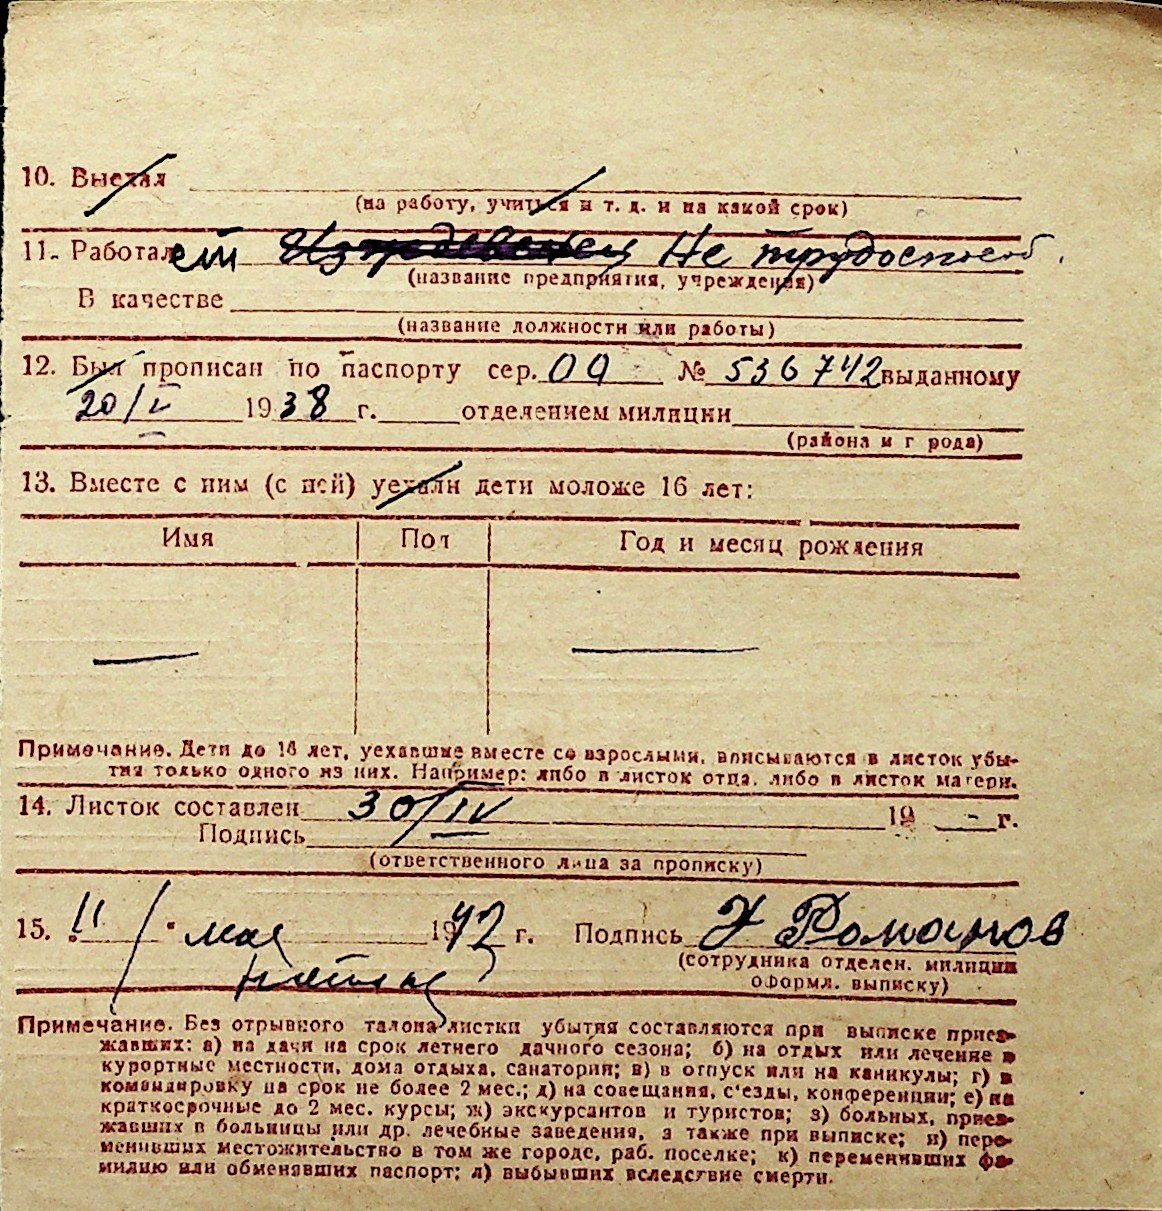 10. Выехал
(на работу, учиться и т. д. и на какой срок)
11. Работает Иждевенец Не трудоспособ.
(название предприятия, учреждения)
В качестве
(название должности или работы)
12. Был прописан по паспорту сер. 09 № 536742 выданному
20/V 1938 г. отделением милиции
(района и г рода)
13. Вместе с ним (с ней) уехали дети моложе 16 лет:
Имя Пол Год и месяц рождения
— —
Примечание. Дети до 16 лет, уехавшие вместе со взрослыми, вписываются в листок убы-
тия только одного из них. Например: либо в листок отца, либо в листок матери.
14. Листок составлен 30/IV 19 - г.
Подпись
(ответственного лица за прописку)
15. "11" мая 1942 г. Подпись Романов
(сотрудника отделен. милиции
оформл. выписку)
Примечание. Без отрывного талона листки убытия составляются при выписке приез-
жавших: а) на дачи на срок летнего дачного сезона; б) на отдых или лечение в
курортные местности, дома отдыха, санатории; в) в отпуск или на каникулы; г) в
командировку на срок не более 2 мес.; д) на совещания, с'езды, конференции; е) на
краткосрочные до 2 мес. курсы; ж) экскурсантов и туристов; з) больных, приез-
жавших в больницы или др. лечебные заведения, а также при выписке; и) пере-
менивших местожительство в том же городе, раб. поселке; к) переменивших фа-
милию или обменявших паспорт; л) выбывших вследствие смерти.